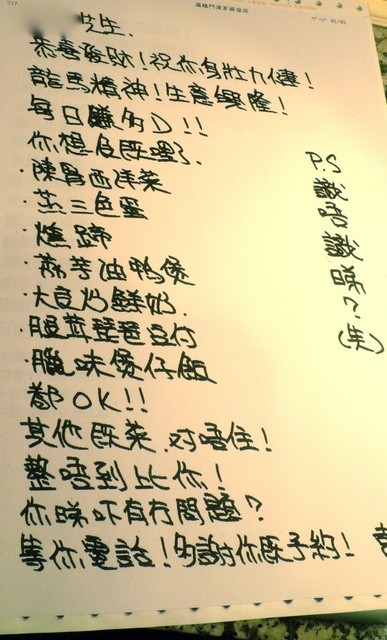 先生.
恭喜發財!祝你身壯力健!
龍馬精神!生意興隆!
每日賺多D!!
你想食既嘢了.
·陳腎西洋菜
·蒸三色蛋
·燻蹄
·荔芋油鴨煲
·大良炒鮮奶.
·腿茸琵琶豆付
·臘味煲仔飯
都OK!!
其他既菜.對唔住!
整唔到比你!
你睇吓有冇問題?
等你電話!多謝你既予約!
P.S
識唔識睇?
(笑)